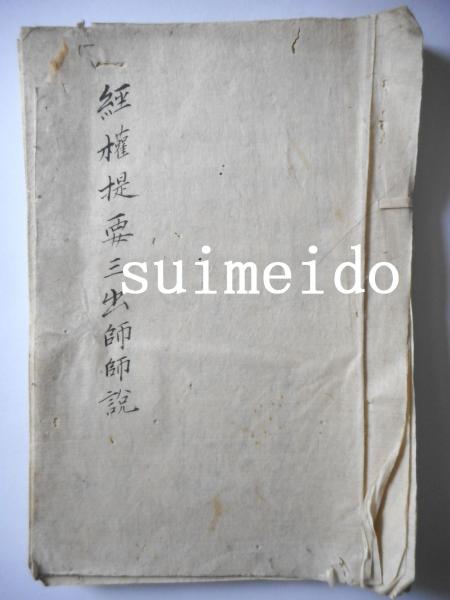 經權提要三出師師說
suimeido